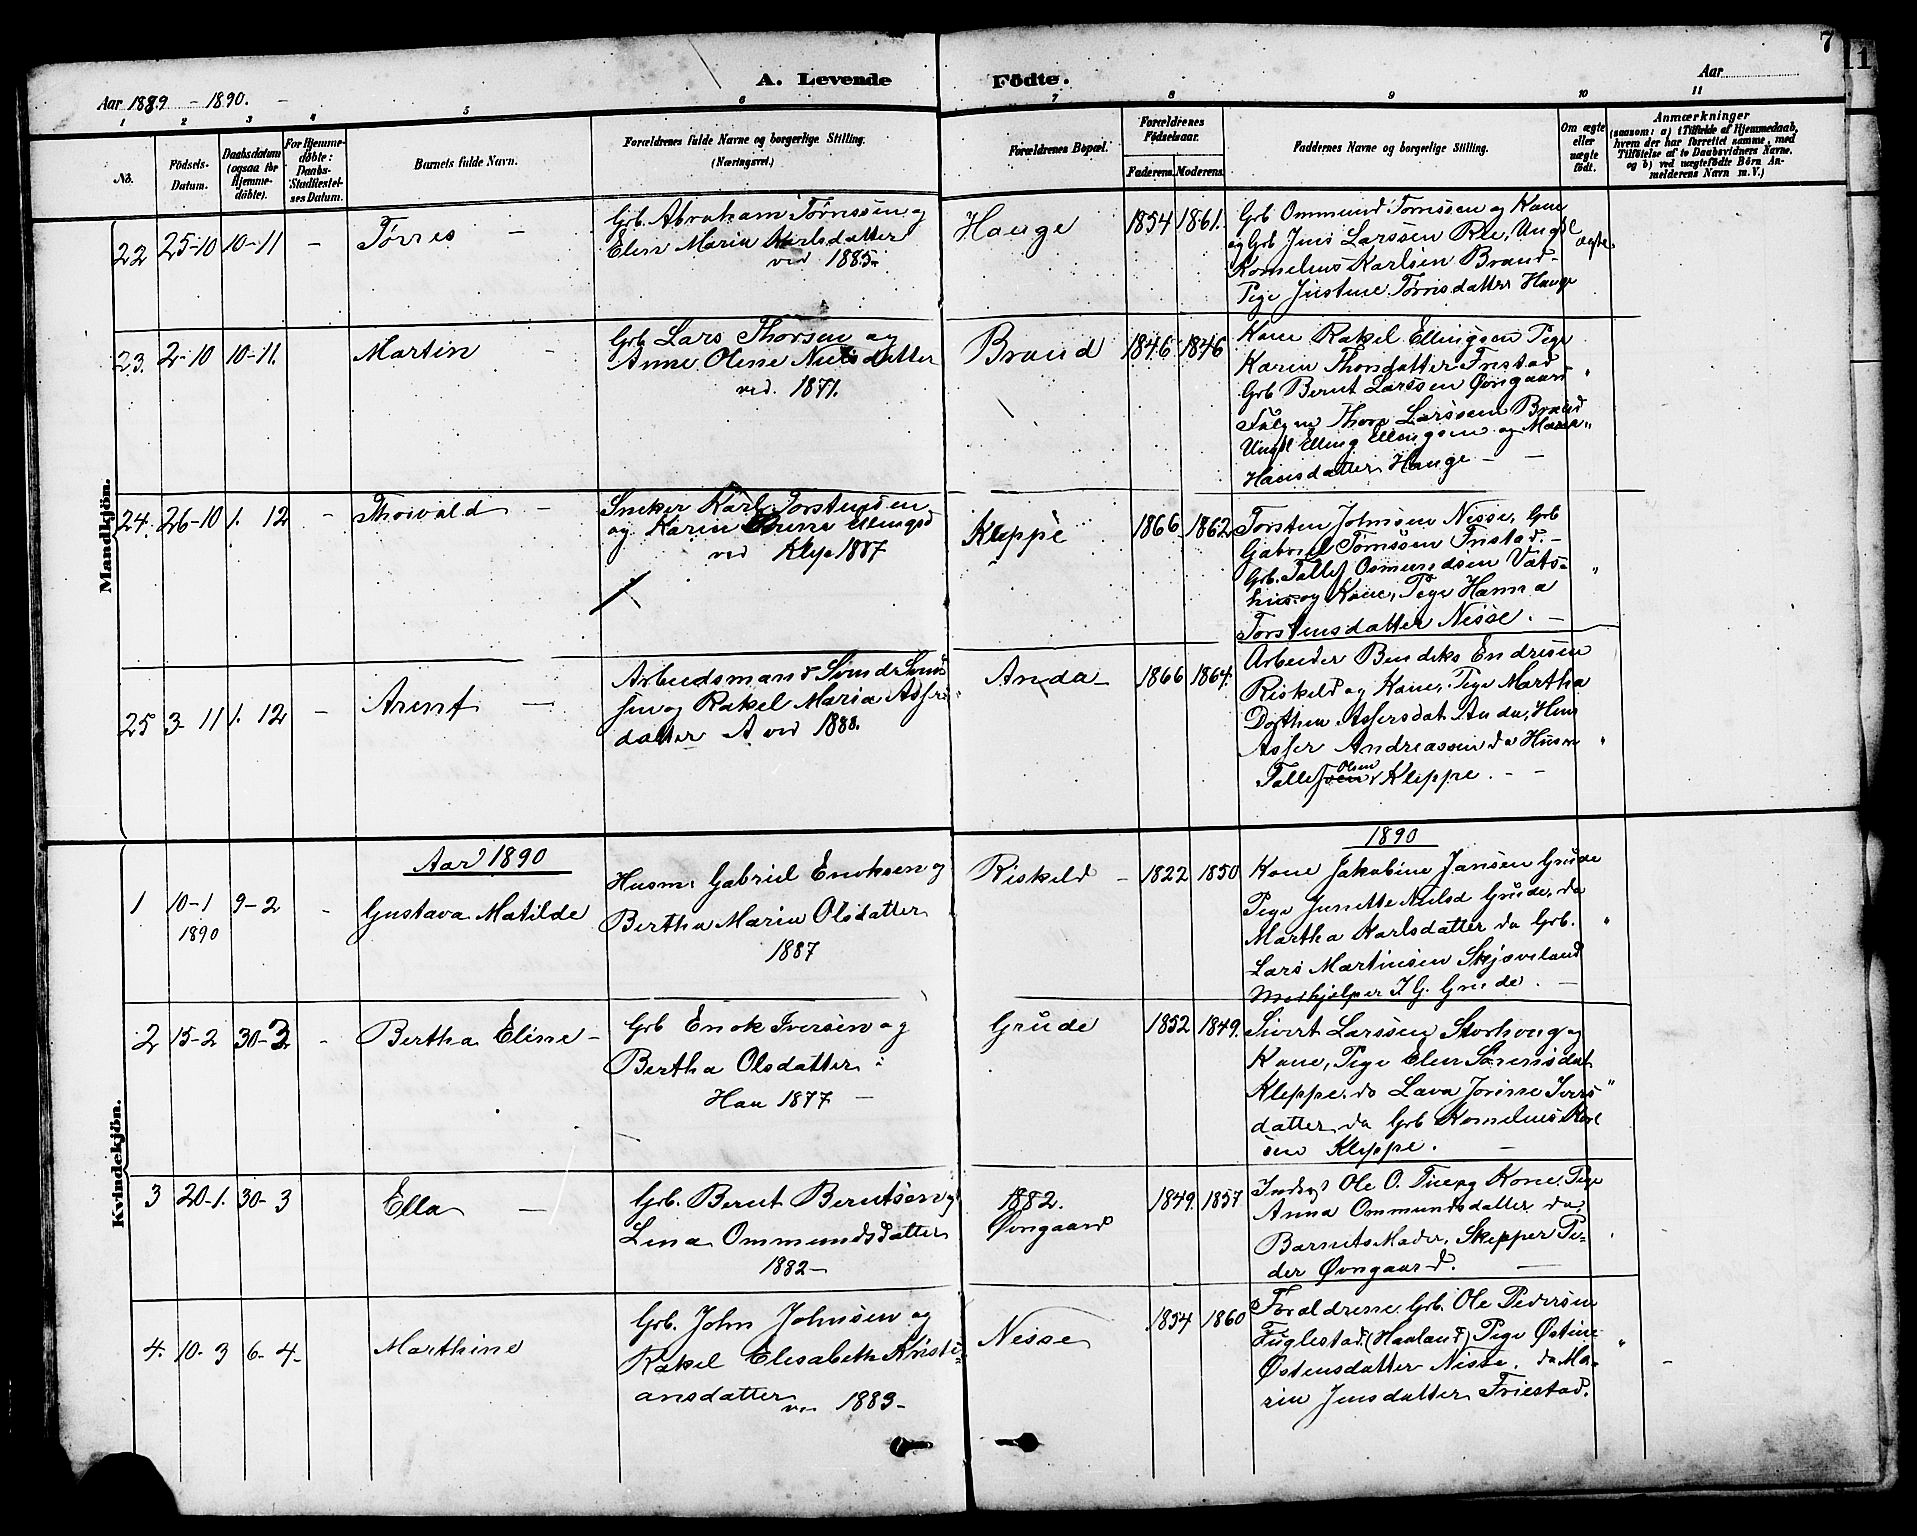 7
A. Levende Födte.
Aar 1889 - 1890. -
Aar
1 2 3 4 5 6 7 8 9 10 11
No.
Födsels-Datum.
Daabsdatum (ogsaa for Hjemme-døbte).
For Hjemme-døbte: Daabs-Stadfæstel-ses Datum.
Barnets fulde Navn.
Forældrenes fulde Navne og borgerlige Stilling. (Næringsvei.)
Forældrenes Bopæl.
Forældrenes Fødselsaar.
Faderens. Moderens.
Faddernes Navne og borgerlige Stilling.
Om ægte eller uægte født.
Anmærkninger
(saasom: a) i Tilfælde af Hjemmedaab, hvem der har forrettet samme, med Tilføielse af to Daabsvidners Navne. og b) ved uægtefødte Børn An-melderens Navn m. V.)
Mandkjön.
22 25-10 10-11 - Tørres -
Grb. Abraham Tørressen og
Elen Maria Karlsdatter
ved 1885-
Hauge 1854 1861.
Grb Ommund Tørressen og Kone
og Grb Jens Larssen Ree, Ungk
Kornelius Karlsen Braud-
Pige Justine Tørresdatter Hauge
ægte
23. 2-10 10-11. Martin -
Grb Lars Thorsen og
Anne Oline Nielsdatter
ved. 1871.
Braud 1846 1846
Kone Rakel Ellingsen Pige
Karen Thorsdatter Friestad
Grb Bernt Larssen Øvregaard
Thore Larssen Braud
Ungk Elling Ellingsen og Maren
Hansdatter Hauge - -
24. 26-10 1. 12 - Thorvald -
Sneker Karl Torstensen
og Karen Ellingsd
ved Klep 1887
Kleppe 1866 1862
Torsten Johnsen Nesse, Grb
Gabriel Tørressen Friestad. -
Grb. Tallef Osmundsen Vats-
hus og Kone, Pige Hanna
Torstensdatter Nesse. -
25 3-11 1. 12 - Arent -
Arbeidsmand Svend Svend-
sen og Rakel Maria Assers-
datter A ved 1888.
Anda - 1866 1864.
Arbeider Bendiks Endresen
Riskeld og Kone, Pige Martha
Dorthea Assersdat Anda,
Asser Andreassen do Husm
Tallef Olsen Kleppe. - -
Kvindekjön.
Aar 1890
1890
1 10-1 1890 9-2 - Gustava Matilde
Husm. Gabriel Enoksen og
Bertha Maria Olsdatter
1887
Riskeld - 1822 1850
Kone Jakobine Jansen Grude
Pige Junette Nielsd Grude, do
Martha Karlsdatter do Grb.
Lars Martinsen Skjæveland
Medhjælper J. G. Grude. -
2 15-2 30-3 - Bertha Eline -
Grb Enok Iversen og
Bertha Olsdatter
Haa 1877 -
Grude 1852 1849.
Sivert Larssen Storhoug og
Kone, Pige Elen Sørensdat
Kleppe. do Lava Jorine Ivers
datter do Grb Kornelius Karl
sen Kleppe. -
3 20-1. 30-3 Ella -
Grb. Bernt Berntsen og
Lina Ommundsdatter
1882-
1882.
Øvregaard
1849. 1857
Ole O. Tu og Kone, Pige
Anna Ommundsdatter do,
Barnets Moder, Skipper Pe-
der Øvregaard. -
4. 10-3 6-4- Marthine
Grb. John Johnsen og
Rakel Elisabeth Kristi-
ansdatter ved 1883-
Nesse 1854 1860
Forældrene, Grb. Ole Pedersen
Fuglestad (Haaland) Pige Østine
Østensdatter Nesse. do Ma-
rin Jensdatter Friestad.